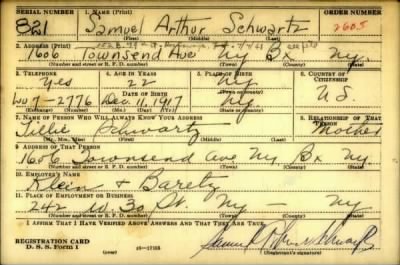 SERIAL NUMBER 1. NAME (Print) ORDER NUMBER
821 Samuel Arthur Schwartz 2605
(First) (Middle) (Last)
2. ADDRESS (Print)
1606 Townsend Ave Ny Bx Ny.
(Number and street or R. F. D. number) (Town) (County) (State)
3. TELEPHONE 4. AGE IN YEARS 5. PLACE OF BIRTH 6. COUNTRY OF CITIZENSHIP
Yes 22 Ny
DATE OF BIRTH U.S.
Lu 7-2776 Dec. 11, 1917 Ny.
(Exchange) (Number) (Mo.) (Day) (Yr.) (State or country)
7. NAME OF PERSON WHO WILL ALWAYS KNOW YOUR ADDRESS 8. RELATIONSHIP OF THAT PERSON
Tillie Schwartz Mother
(Mr., Mrs., Miss) (First) (Middle) (Last)
9. ADDRESS OF THAT PERSON
1606 Townsend ave Ny Bx Ny
(Number and street or R. F. D. number) (Town) (County) (State)
10. EMPLOYER'S NAME
Klein & Baretz
11. PLACE OF EMPLOYMENT OR BUSINESS
242 W. 30 St. Ny — Ny
(Number and street or R. F. D. number) (Town) (County) (State)
I AFFIRM THAT I HAVE VERIFIED ABOVE ANSWERS AND THAT THEY ARE TRUE.
REGISTRATION CARD
D. S. S. Form 1 16—17105 Samuel Arthur Schwartz
(Registrant's signature)